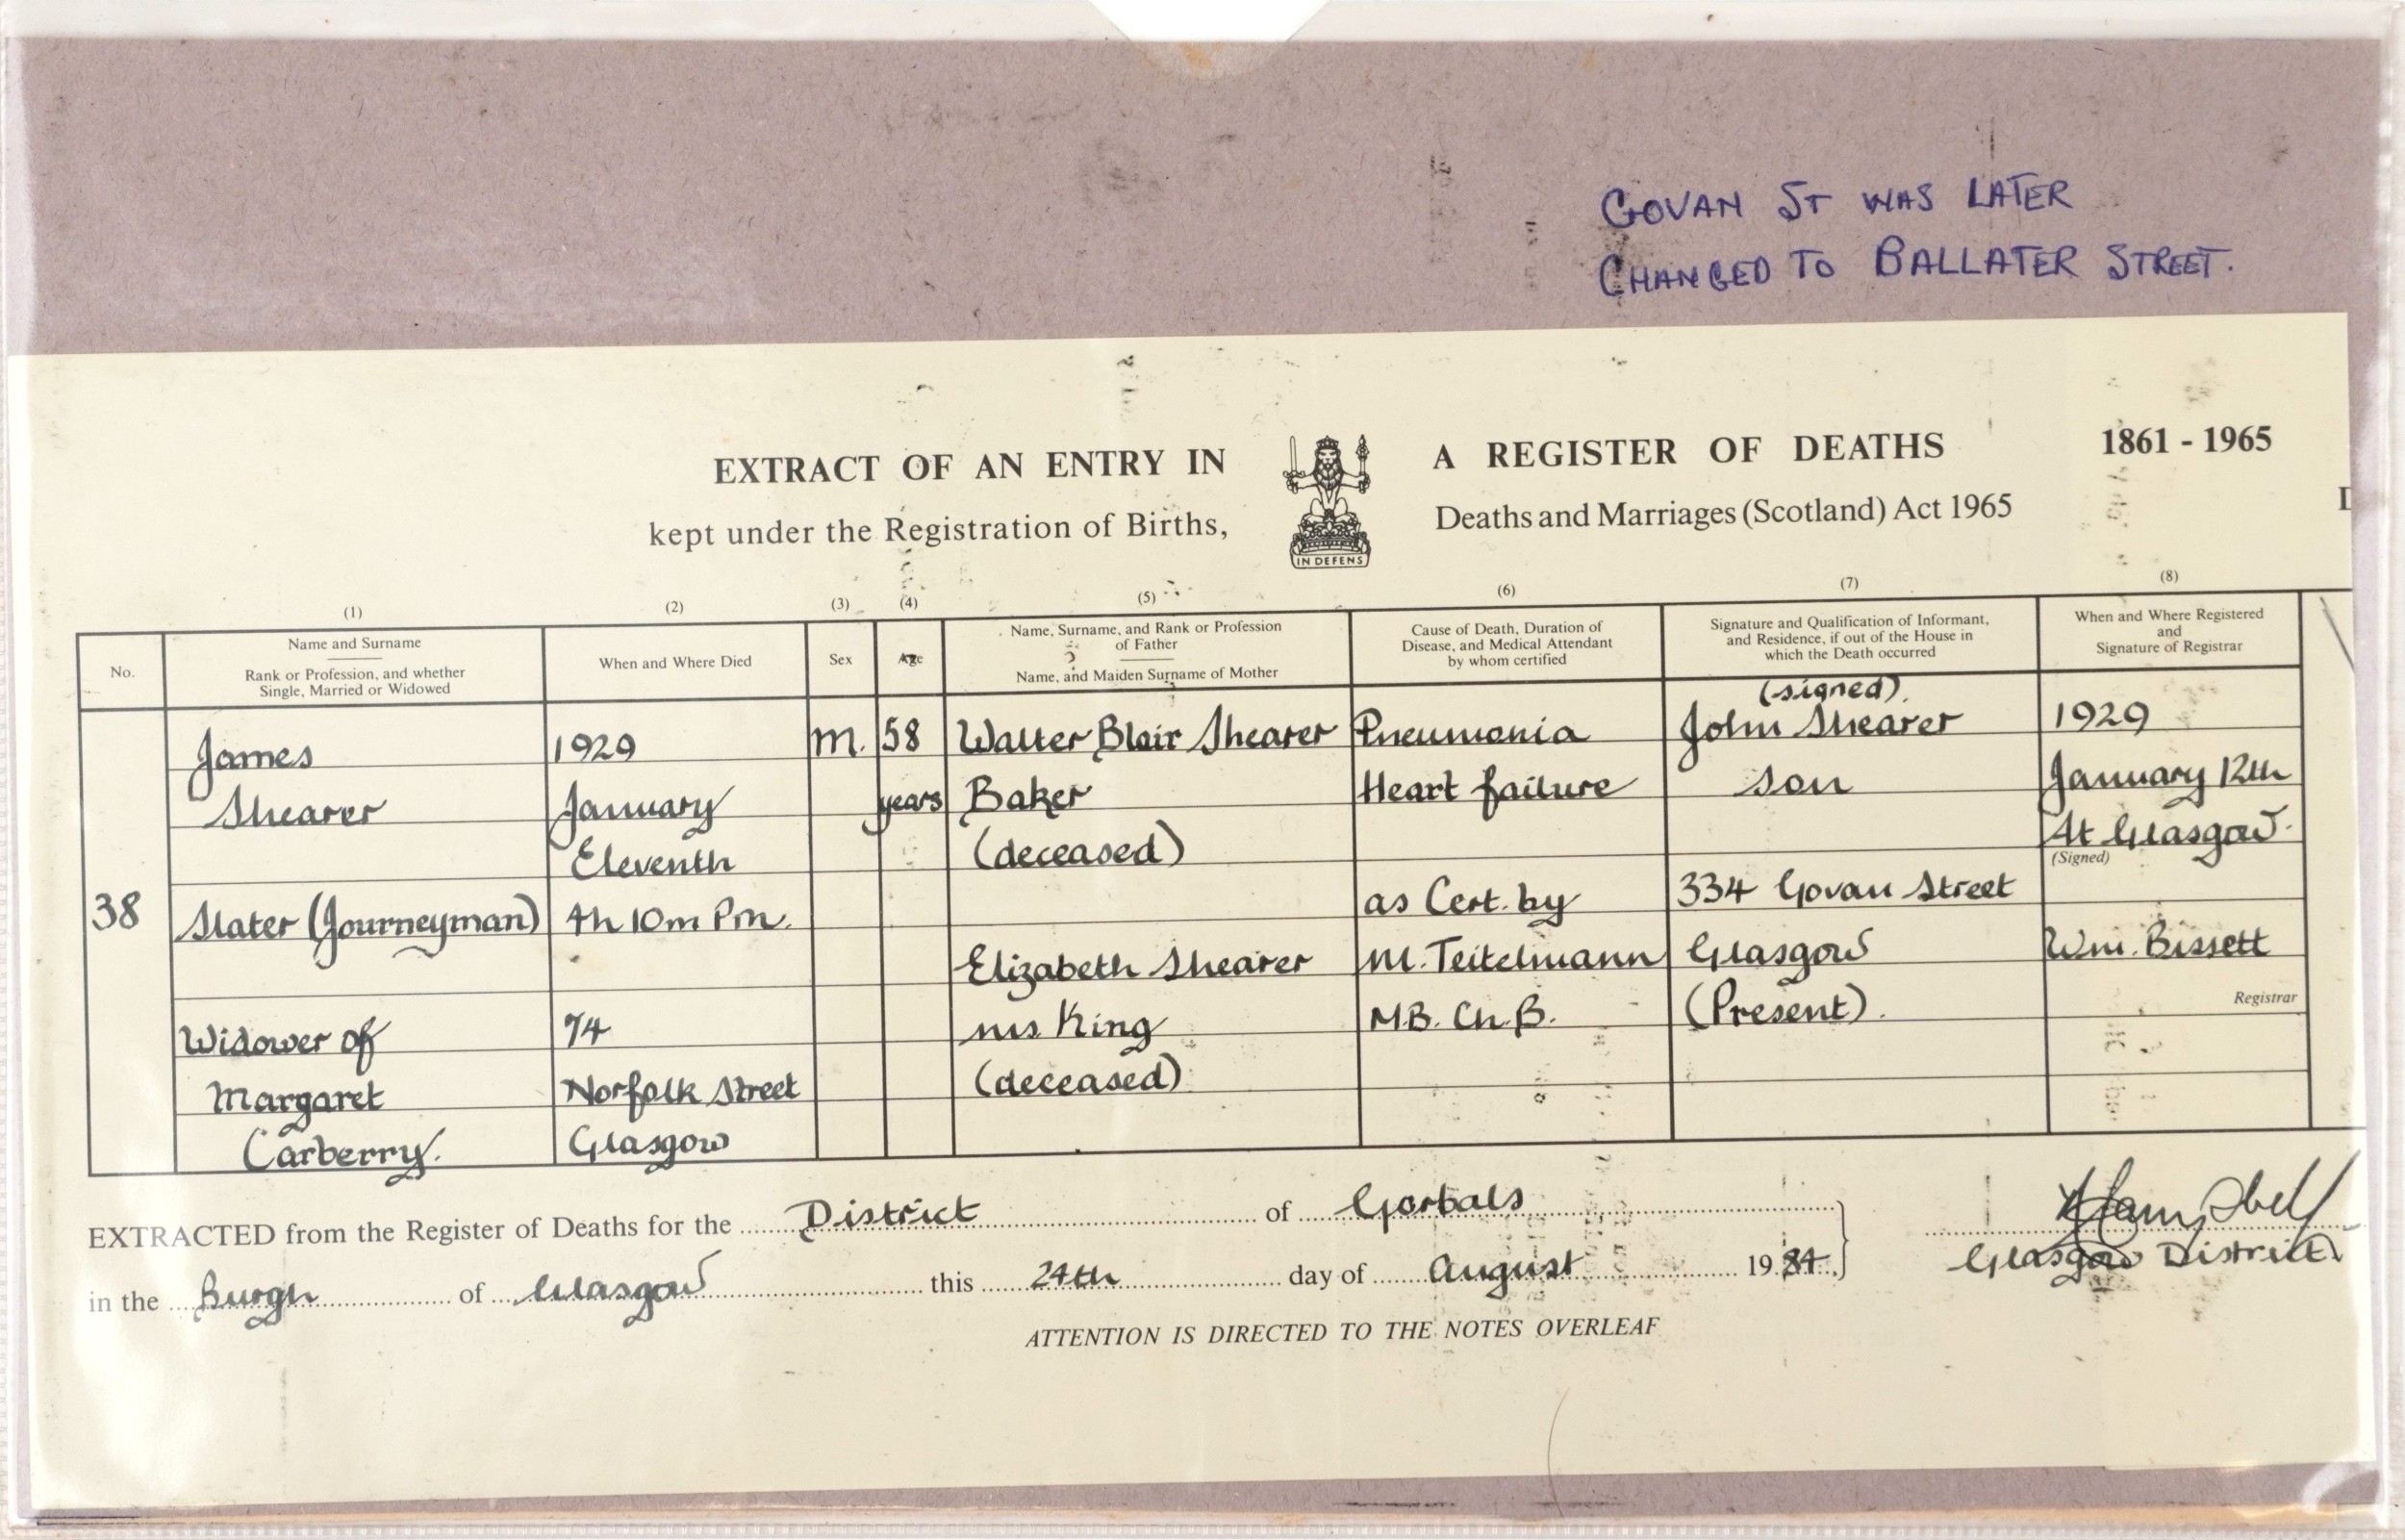 GOVAN ST WAS LATER
CHANGED TO BALLATER STREET.
EXTRACT OF AN ENTRY IN A REGISTER OF DEATHS 1861 - 1965
kept under the Registration of Births, Deaths and Marriages (Scotland) Act 1965
IN DEFENS
(1) (2) (3) (4) (5) (6) (7) (8)
No.
Name and Surname
Rank or Profession, and whether
Single, Married or Widowed
When and Where Died
Sex
Age
Name, Surname, and Rank or Profession
of Father
Name, and Maiden Surname of Mother
Cause of Death, Duration of
Disease, and Medical Attendant
by whom certified
Signature and Qualification of Informant,
and Residence, if out of the House in
which the Death occurred
When and Where Registered
and
Signature of Registrar
38
James
Shearer
Slater (Journeyman)
Widower of
Margaret
Carberry.
1929
January
Eleventh
4h 10m Pm.
74
Norfolk Street
Glasgow
M.
58
years
Walter Blair Shearer
Baker
(deceased)
Elizabeth Shearer
ms King
(deceased)
Pneumonia
Heart failure
as Cert. by
M. Teitelmann
M.B. Ch.B.
(signed).
John Shearer
son
334 Govan Street
Glasgow
(Present).
1929
January 12th
At Glasgow.
(Signed)
Wm. Bissett
Registrar
EXTRACTED from the Register of Deaths for the District of Gorbals
in the Burgh of Glasgow this 24th day of August 1984
Glasgow District
ATTENTION IS DIRECTED TO THE NOTES OVERLEAF